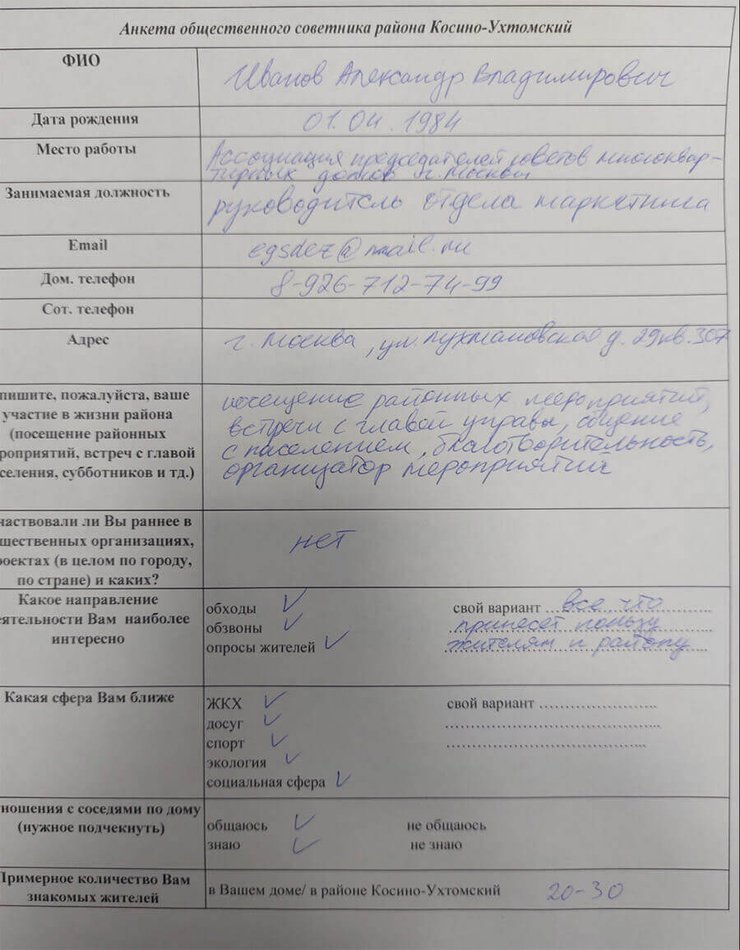 Анкета общественного советника района Косино-Ухтомский
ФИО
Иванов Александр Владимирович
Дата рождения
01.04.1984
Место работы
Ассоциация председателей советов многоквар-
тирных домов г. Москвы
Занимаемая должность
руководитель отдела маркетинга
Email
egsdez@mail.ru
Дом. телефон
8-926-712-74-99
Сот. телефон
Адрес
г. Москва, ул. Лухмановская д. 29 кв. 307
пишите, пожалуйста, ваше
участие в жизни района
(посещение районных
роприятий, встреч с главой
селения, субботников и тд.)
посещение районных мероприятий,
встречи с главой управы, общение
с населением, благотворительность,
организатор мероприятий
частвовали ли Вы раннее в
щественных организациях,
роектах (в целом по городу,
по стране) и каких?
нет
Какое направление
еятельности Вам наиболее
интересно
обходы ✓
обзвоны ✓
опросы жителей ✓
свой вариант все что
принесёт пользу
жителям и району
Какая сфера Вам ближе
ЖКХ ✓
досуг ✓
спорт ✓
экология ✓
социальная сфера ✓
свой вариант
ношения с соседями по дому
(нужное подчекнуть)
общаюсь ✓ не общаюсь
знаю ✓ не знаю
Примерное количество Вам
знакомых жителей
в Вашем доме/ в районе Косино-Ухтомский 20-30